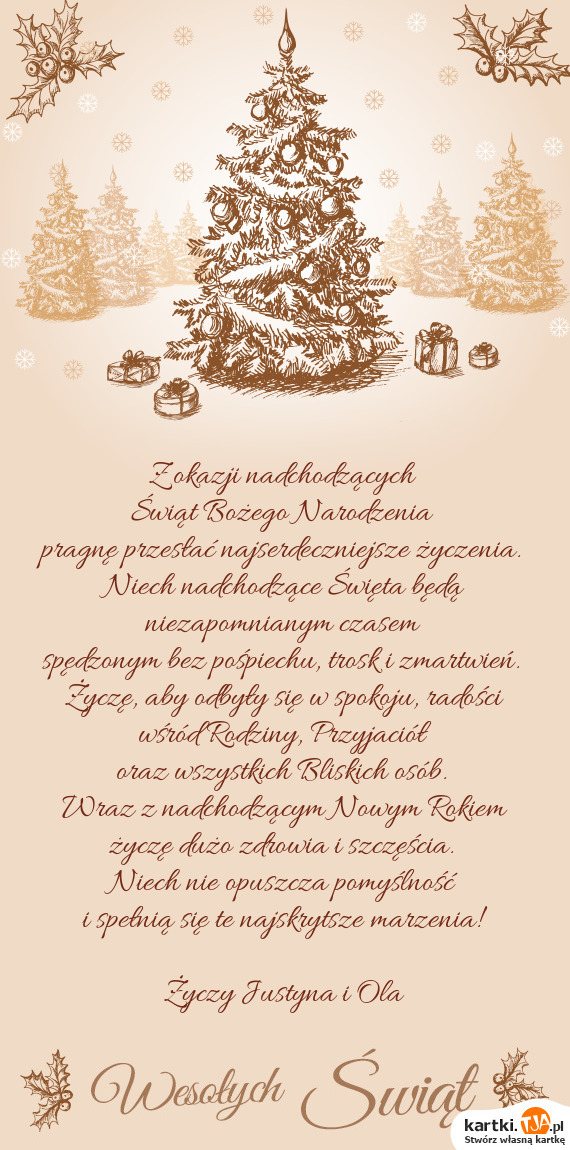 Z okazji nadchodzących
Świąt Bożego Narodzenia
pragnę przesłać najserdeczniejsze życzenia.
Niech nadchodzące Święta będą
niezapomnianym czasem
spędzonym bez pośpiechu, trosk i zmartwień.
Życzę, aby odbyły się w spokoju, radości
wśród Rodziny, Przyjaciół
oraz wszystkich Bliskich osób.
Wraz z nadchodzącym Nowym Rokiem
życzę dużo zdrowia i szczęścia.
Niech nie opuszcza pomyślność
i spełnią się te najskrytsze marzenia!
Życzy Justyna i Ola
Wesołych Świąt
kartki.TJA.pl
Stwórz własną kartkę